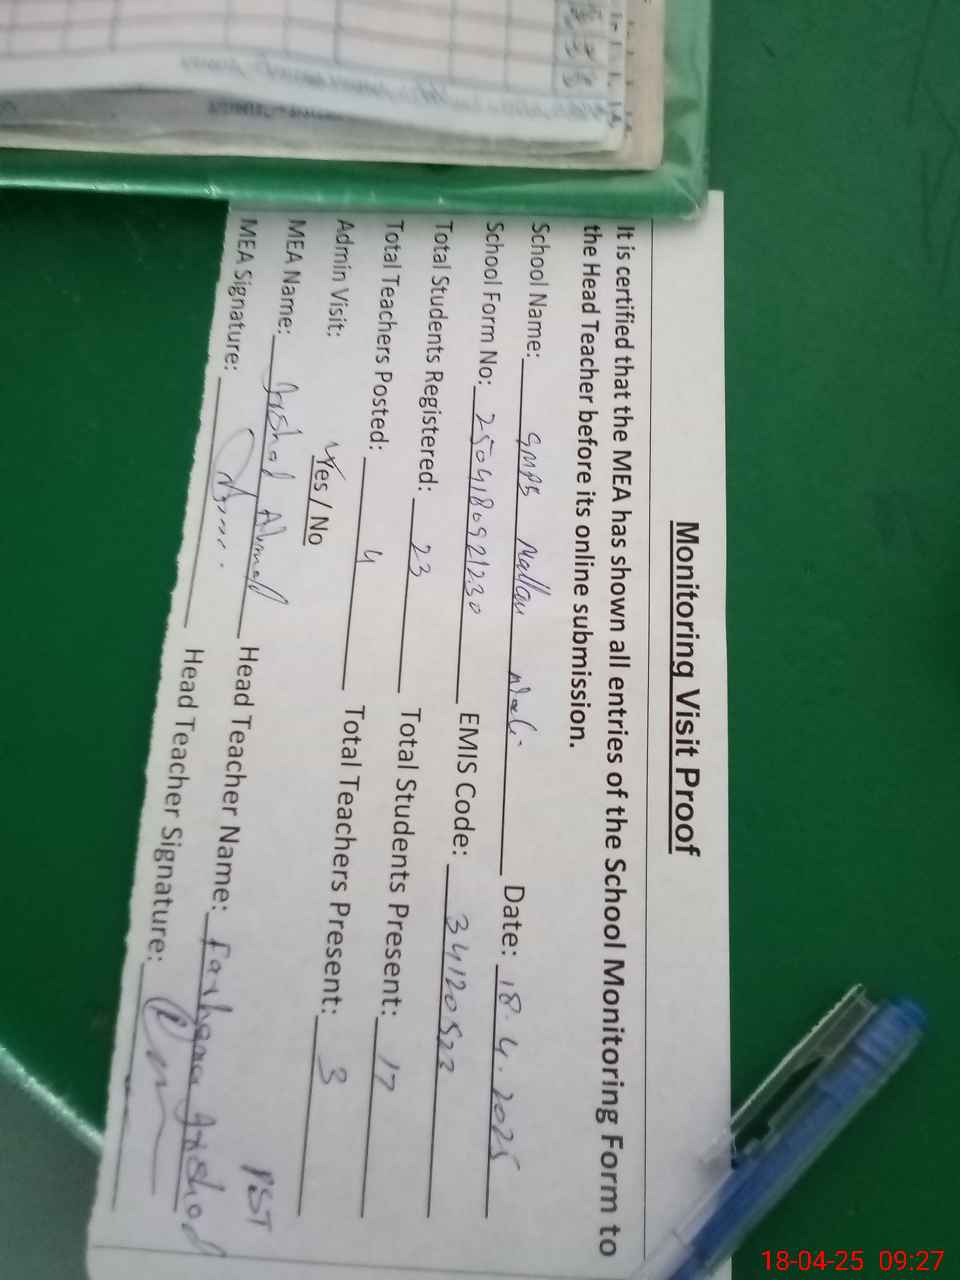 Monitoring Visit Proof
It is certified that the MEA has shown all entries of the School Monitoring Form to
the Head Teacher before its online submission.
School Name: GMPS Mallau Wali Date: 18.4.2025
School Form No: 2504180921230 EMIS Code: 34120522
Total Students Registered: 23 Total Students Present: 17
Total Teachers Posted: 4 Total Teachers Present: 3
Admin Visit: Yes / No
PST
MEA Name: Arshad Ahmad Head Teacher Name: Farhana Arshad
MEA Signature: Head Teacher Signature:
18-04-25 09:27